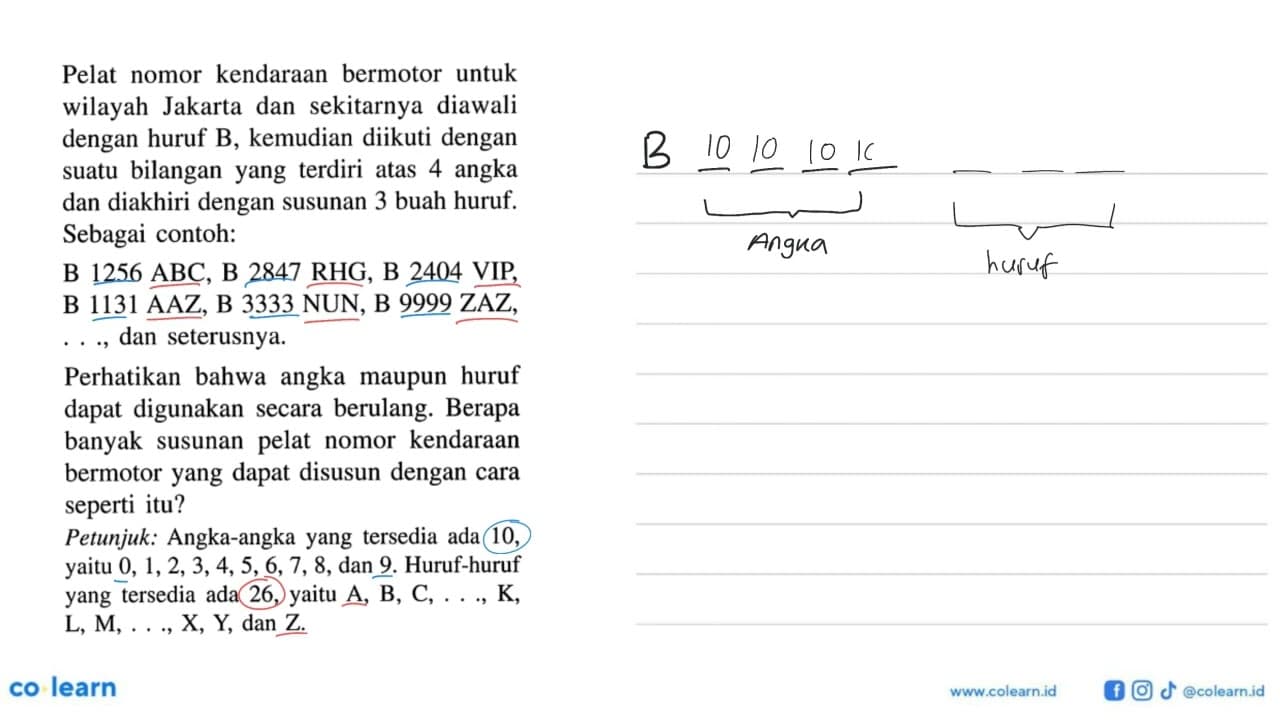 Pelat nomor kendaraan bermotor untuk
wilayah Jakarta dan sekitarnya diawali
dengan huruf B, kemudian diikuti dengan
suatu bilangan yang terdiri atas 4 angka
dan diakhiri dengan susunan 3 buah huruf.
Sebagai contoh:
B 1256 ABC, B 2847 RHG, B 2404 VIP,
B 1131 AAZ, B 3333 NUN, B 9999 ZAZ,
. . ., dan seterusnya.
Perhatikan bahwa angka maupun huruf
dapat digunakan secara berulang. Berapa
banyak susunan pelat nomor kendaraan
bermotor yang dapat disusun dengan cara
seperti itu?
Petunjuk: Angka-angka yang tersedia ada 10,
yaitu 0, 1, 2, 3, 4, 5, 6, 7, 8, dan 9. Huruf-huruf
yang tersedia ada 26, yaitu A, B, C, . . ., K,
L, M, . . ., X, Y, dan Z.
B 10 10 10 1c
Angka
huruf
co learn
www.colearn.id
@colearn.id